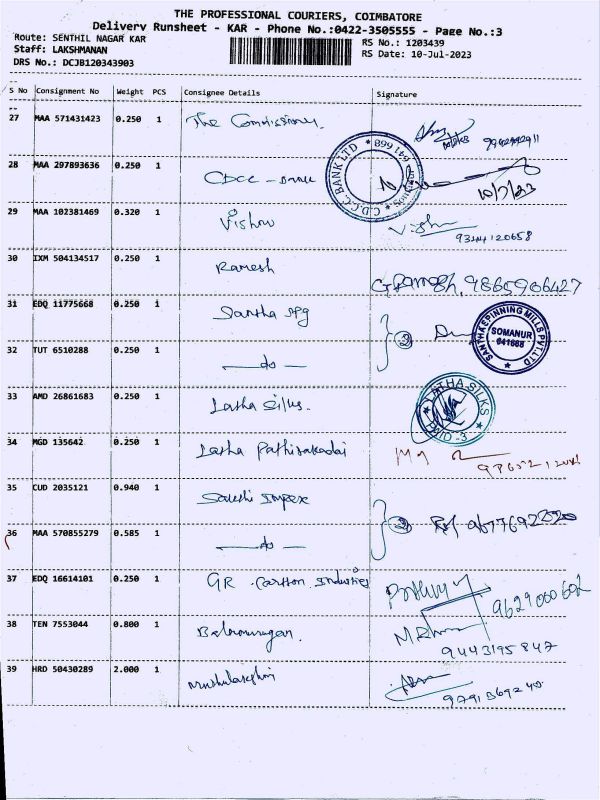 THE PROFESSIONAL COURIERS, COIMBATORE
Delivery Runsheet - KAR - Phone No.:0422-3505555 - Page No.:3
Route: SENTHIL NAGAR KAR
RS No.: 1203439
Staff: LAKSHMANAN
RS Date: 10-Jul-2023
DRS No.: DCJB120343903
S No Consignment No Weight PCS Consignee Details Signature
27 MAA 571431423 0.250 1 The Commissioner.
28 MAA 297893636 0.250 1 CDCC - Bank
C.D.C.C. BANK LTD
10/7/23
29 MAA 102381469 0.320 1 Vishnu
9344120658
30 IXM 504134517 0.250 1 Ramesh G Ramesh, 9865906427
31 EDQ 11775668 0.250 1 Santha Spg
SANTHA SPINNING MILLS PVT LTD
SOMANUR
641668
32 TUT 6510288 0.250 1 —do—
33 AMD 26861683 0.250 1 Latha Silks.
LATHA SILKS
34 MGD 135642 0.250 1 Latha
35 CUD 2035121 0.940 1 Sakthi Impex
36 MAA 570855279 0.585 1 —do—
37 EDQ 16614101 0.250 1 GR Carton Industries
9629000602
38 TEN 7553044 0.800 1 Balamurugan.
9443195847
39 HRD 50430289 2.000 1 Muthulakshmi